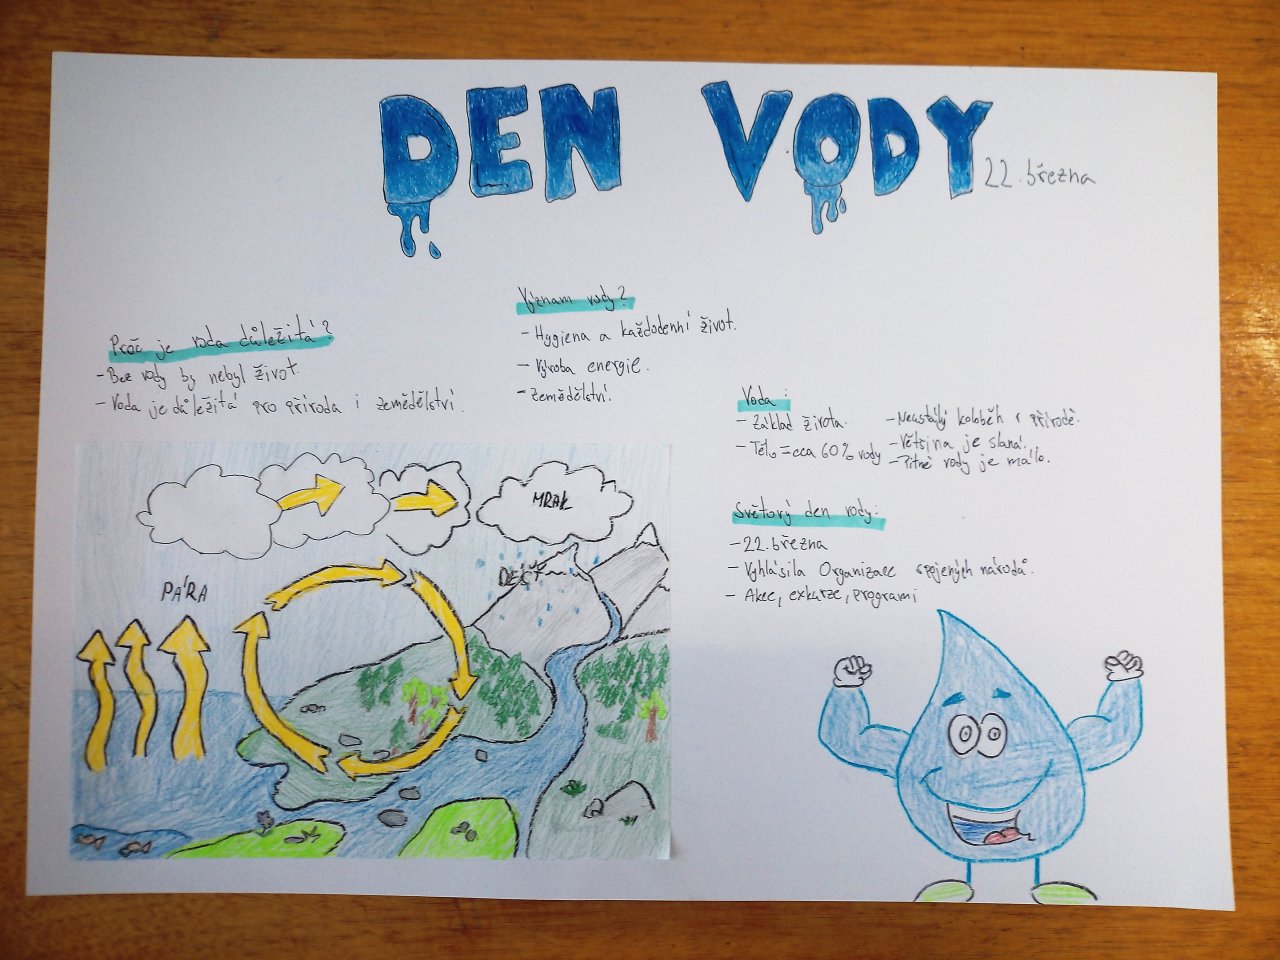 DEN VODY
22. března
Proč je voda důležitá?
- Bez vody by nebyl život.
- Voda je důležitá pro příroda i zemědělství.
Význam vody?
- Hygiena a každodenní život.
- Výroba energie.
- Zemědělství.
Voda:
- Základ života.
- Tělo = cca 60% vody
- Neustálý koloběh v přírodě.
- Většina je slaná.
- Pitné vody je málo.
Světový den vody:
- 22. března
- Vyhlásila Organizace spojených národů.
- Akce, exkurze, programi
MRAK
PÁRA
DÉŠŤ